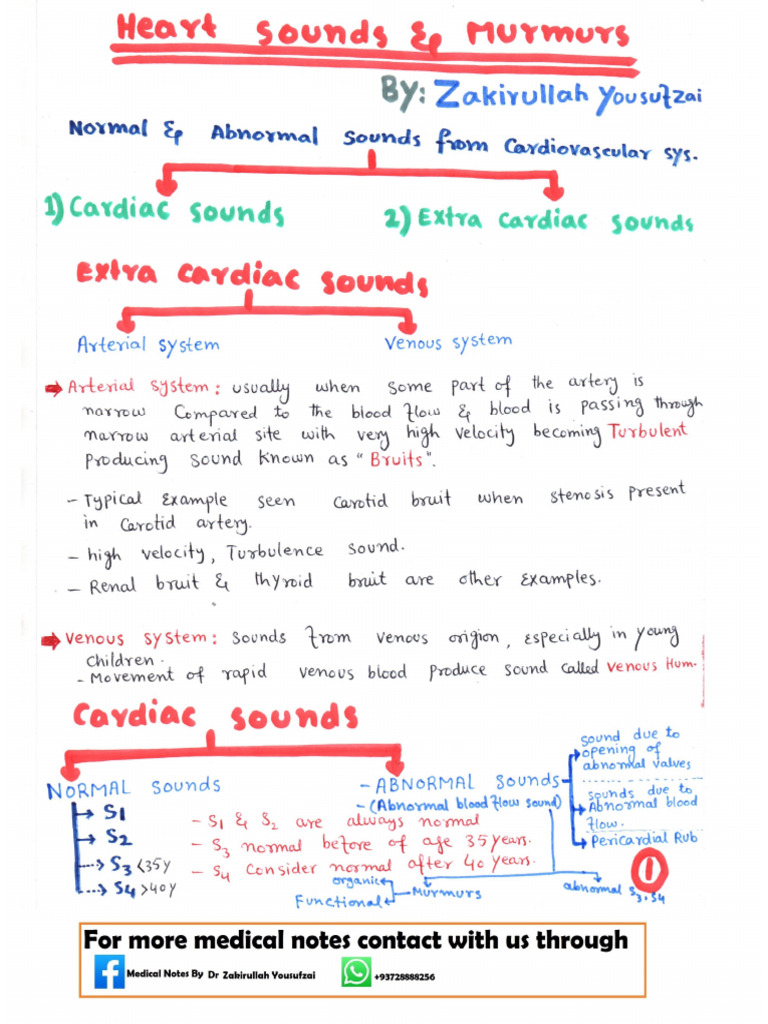 Heart Sounds & Murmurs
By: Zakirullah Yousufzai
Normal & Abnormal Sounds from Cardiovascular sys.
1) Cardiac Sounds
2) Extra Cardiac Sounds
Extra Cardiac Sounds
Arterial System
Venous System
Arterial System: usually when some part of the artery is
narrow Compared to the blood flow & blood is passing through
narrow arterial site with very high velocity becoming Turbulent
Producing sound known as "Bruits".
- Typical Example seen Carotid bruit when stenosis present
in Carotid artery.
- high velocity, Turbulence sound.
- Renal bruit & thyroid bruit are other Examples.
Venous System: Sounds from venous origion, especially in young
children.
- Movement of rapid venous blood produce sound called venous Hum.
Cardiac Sounds
NORMAL Sounds
S1
S2
S3 <35y
S4 >40y
- S1 & S2 are always normal
- S3 normal before of age 35 years.
- S4 Consider normal after 40 years.
- ABNORMAL Sounds
- (Abnormal blood flow sound)
sound due to
opening of
abnormal valves
sounds due to
Abnormal blood
flow.
Pericardial Rub
Murmurs
organic
Functional
abnormal S3, S4
1
For more medical notes contact with us through
Medical Notes By Dr Zakirullah Yousufzai
+93728888256